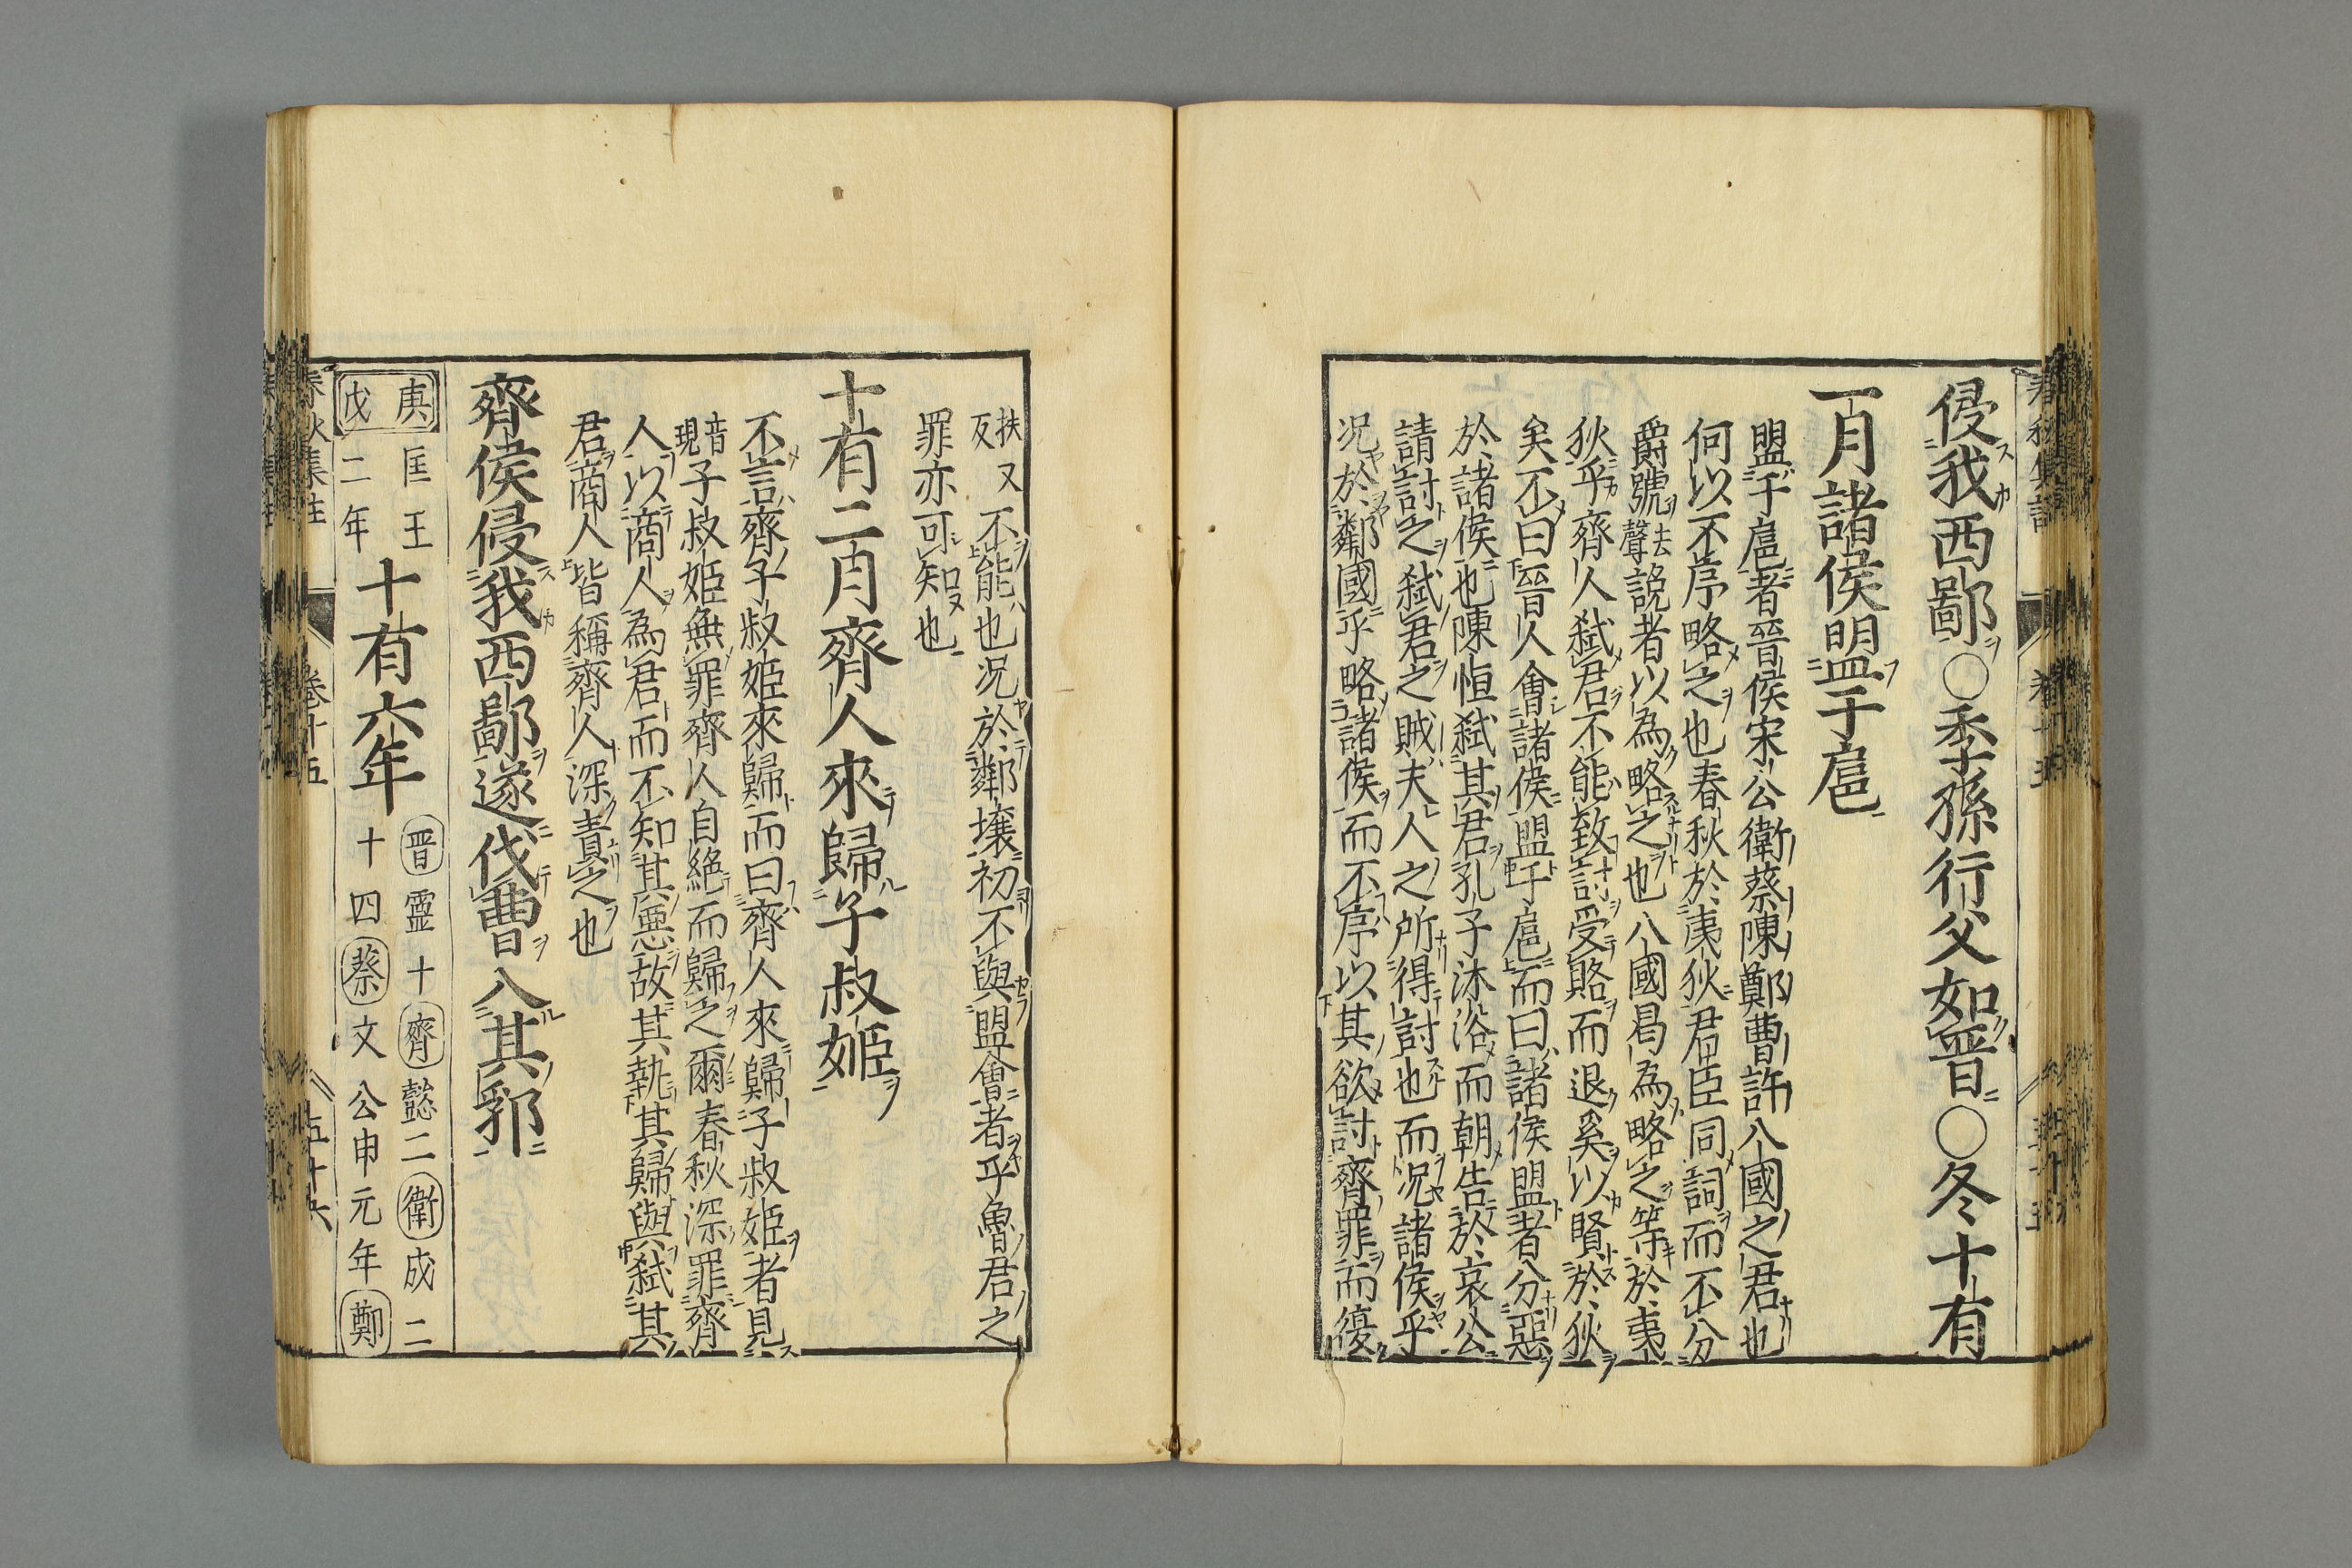 侵我西鄙○季孫行父如晉○冬十有
一月諸侯盟于扈
盟于扈者晉侯宋公衛蔡陳鄭曹許八國之君也
何以不序略之也春秋於夷狄君臣同詞而不分
爵號去聲說者以為略之也八國曷為略之等於夷
狄乎齊人弑君不能致討受賂而退奚以賢於狄
矣不曰晉人會諸侯盟于扈而曰諸侯盟者分惡
於諸侯也陳恒弑其君孔子沐浴而朝告於哀公
請討之弑君之賊夫人之所得討也而況諸侯乎
況於鄰國乎略諸侯而不序以其欲討齊罪而復
扶又反不能也況於鄰壤初不與盟會者乎魯君之
罪亦可知也
十有二月齊人來歸子叔姬
不言齊子叔姬來歸而曰齊人來歸子叔姬者見
音現子叔姬無罪齊人自絶而歸之爾春秋深罪齊
人以商人為君而不知其惡故其執其歸與弑其
君商人皆稱齊人深責之也
齊侯侵我西鄙遂伐曹入其郛
庚戌匡王二年十有六年晉靈十齊懿二衛成二十四蔡文公申元年鄭
春秋集註 卷十五 五十六